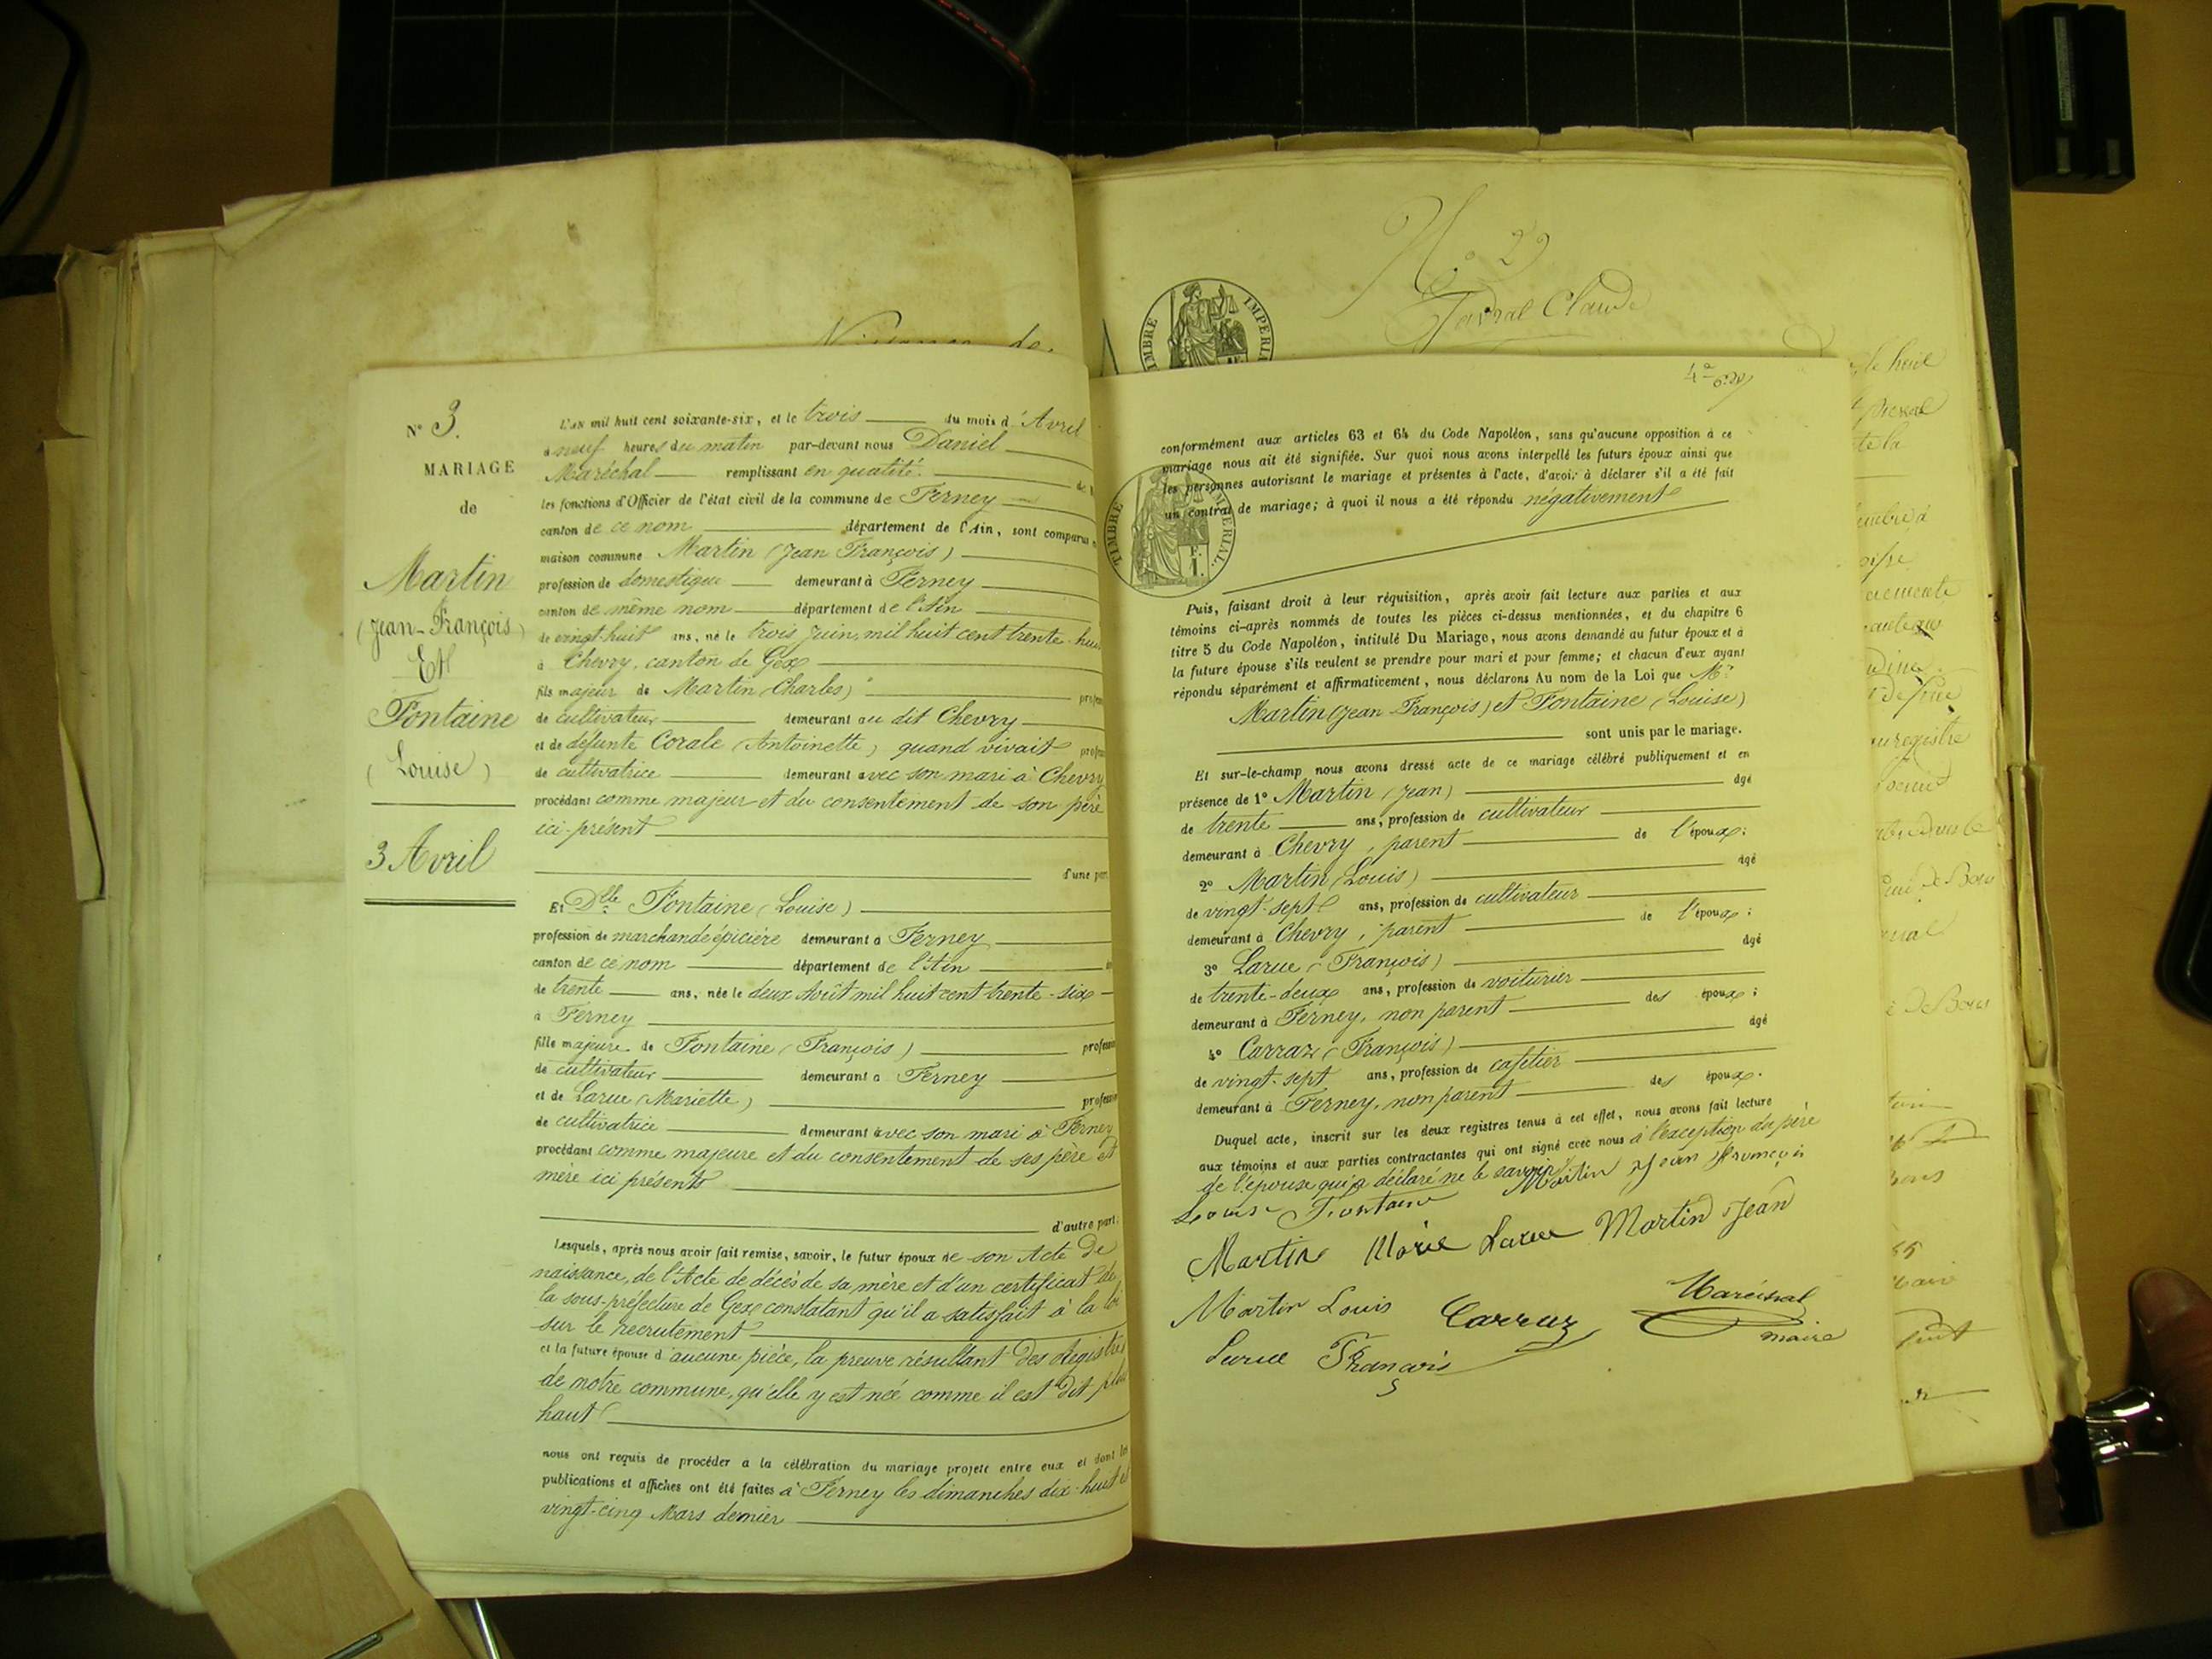 N° 3.
MARIAGE
de
Martin
(Jean-François)
Et
Fontaine
(Louise)
3 Avril
L'AN mil huit cent soixante-six, et le trois du mois d'Avril
à neuf heures du matin par-devant nous Daniel
Maréchal remplissant en qualité
les fonctions d'Officier de l'état civil de la commune de Ferney
canton de ce nom département de l'Ain, sont comparus
maison commune Martin (Jean François)
profession de domestique demeurant à Ferney
canton de même nom département de l'Ain
de vingt-huit ans, né le trois Juin, mil huit cent trente-huit
à Chevry, canton de Gex
fils majeur de Martin (Charles)
de cultivateur demeurant au dit Chevry
et de défunte Corale (Antoinette) quand vivait
de cultivatrice demeurant avec son mari à Chevry
procédant comme majeur et du consentement de son père
ici-présent
d'une part
Et Dlle Fontaine (Louise)
profession de marchande épicière demeurant à Ferney
canton de ce nom département de l'Ain
de trente ans, née le deux Août mil huit cent trente-six
à Ferney
fille majeure de Fontaine (François) profession
de cultivateur demeurant à Ferney
et de Larue (Mariette) profession
de cultivatrice demeurant avec son mari à Ferney
procédant comme majeure et du consentement de ses père et
mère ici présents
d'autre part.
Lesquels, après nous avoir fait remise, savoir, le futur époux de son Acte de
naissance, de l'Acte de décès de sa mère et d'un certificat de
la sous-préfecture de Gex constatant qu'il a satisfait à la loi
sur le recrutement
et la future épouse d'aucune pièce, la preuve résultant des Registres
de notre commune, qu'elle y est née comme il est dit plus
haut
nous ont requis de procéder à la célébration du mariage projeté entre eux et dont les
publications et affiches ont été faites à Ferney les dimanches dix-huit et
vingt-cinq Mars dernier
N° 29
Claude
TIMBRE IMPERIAL
conformément aux articles 63 et 64 du Code Napoléon, sans qu'aucune opposition à ce
mariage nous ait été signifiée. Sur quoi nous avons interpellé les futurs époux ainsi que
les personnes autorisant le mariage et présentes à l'acte, d'avoir à déclarer s'il a été fait
un contrat de mariage; à quoi il nous a été répondu négativement
TIMBRE IMPERIAL.
1 F.
Puis, faisant droit à leur réquisition, après avoir fait lecture aux parties et aux
témoins ci-après nommés de toutes les pièces ci-dessus mentionnées, et du chapitre 6
titre 5 du Code Napoléon, intitulé Du Mariage, nous avons demandé au futur époux et à
la future épouse s'ils veulent se prendre pour mari et pour femme; et chacun d'eux ayant
répondu séparément et affirmativement, nous déclarons Au nom de la Loi que Mr
Martin (Jean-François) et Fontaine (Louise)
sont unis par le mariage.
Et sur-le-champ nous avons dressé acte de ce mariage célébré publiquement et en
présence de 1° Martin (Jean) âgé
de trente ans, profession de cultivateur
demeurant à Chevry, parent de l'époux;
2° Martin (Louis) âgé
de vingt-sept ans, profession de cultivateur
demeurant à Chevry, parent de l'époux;
3° Larue (François) âgé
de trente-deux ans, profession de voiturier
demeurant à Ferney, non parent des époux;
4° Carraz (François) âgé
de vingt-sept ans, profession de cafetier
demeurant à Ferney, non parent des époux.
Duquel acte, inscrit sur les deux registres tenus à cet effet, nous avons fait lecture
aux témoins et aux parties contractantes qui ont signé avec nous à l'exception du père
de l'épouse qui a déclaré ne le savoir. Martin Jean François
Louise Fontaine
Martin Marie Larue Martin Jean
Martin Louis Carraz Maréchal
maire
Larue François